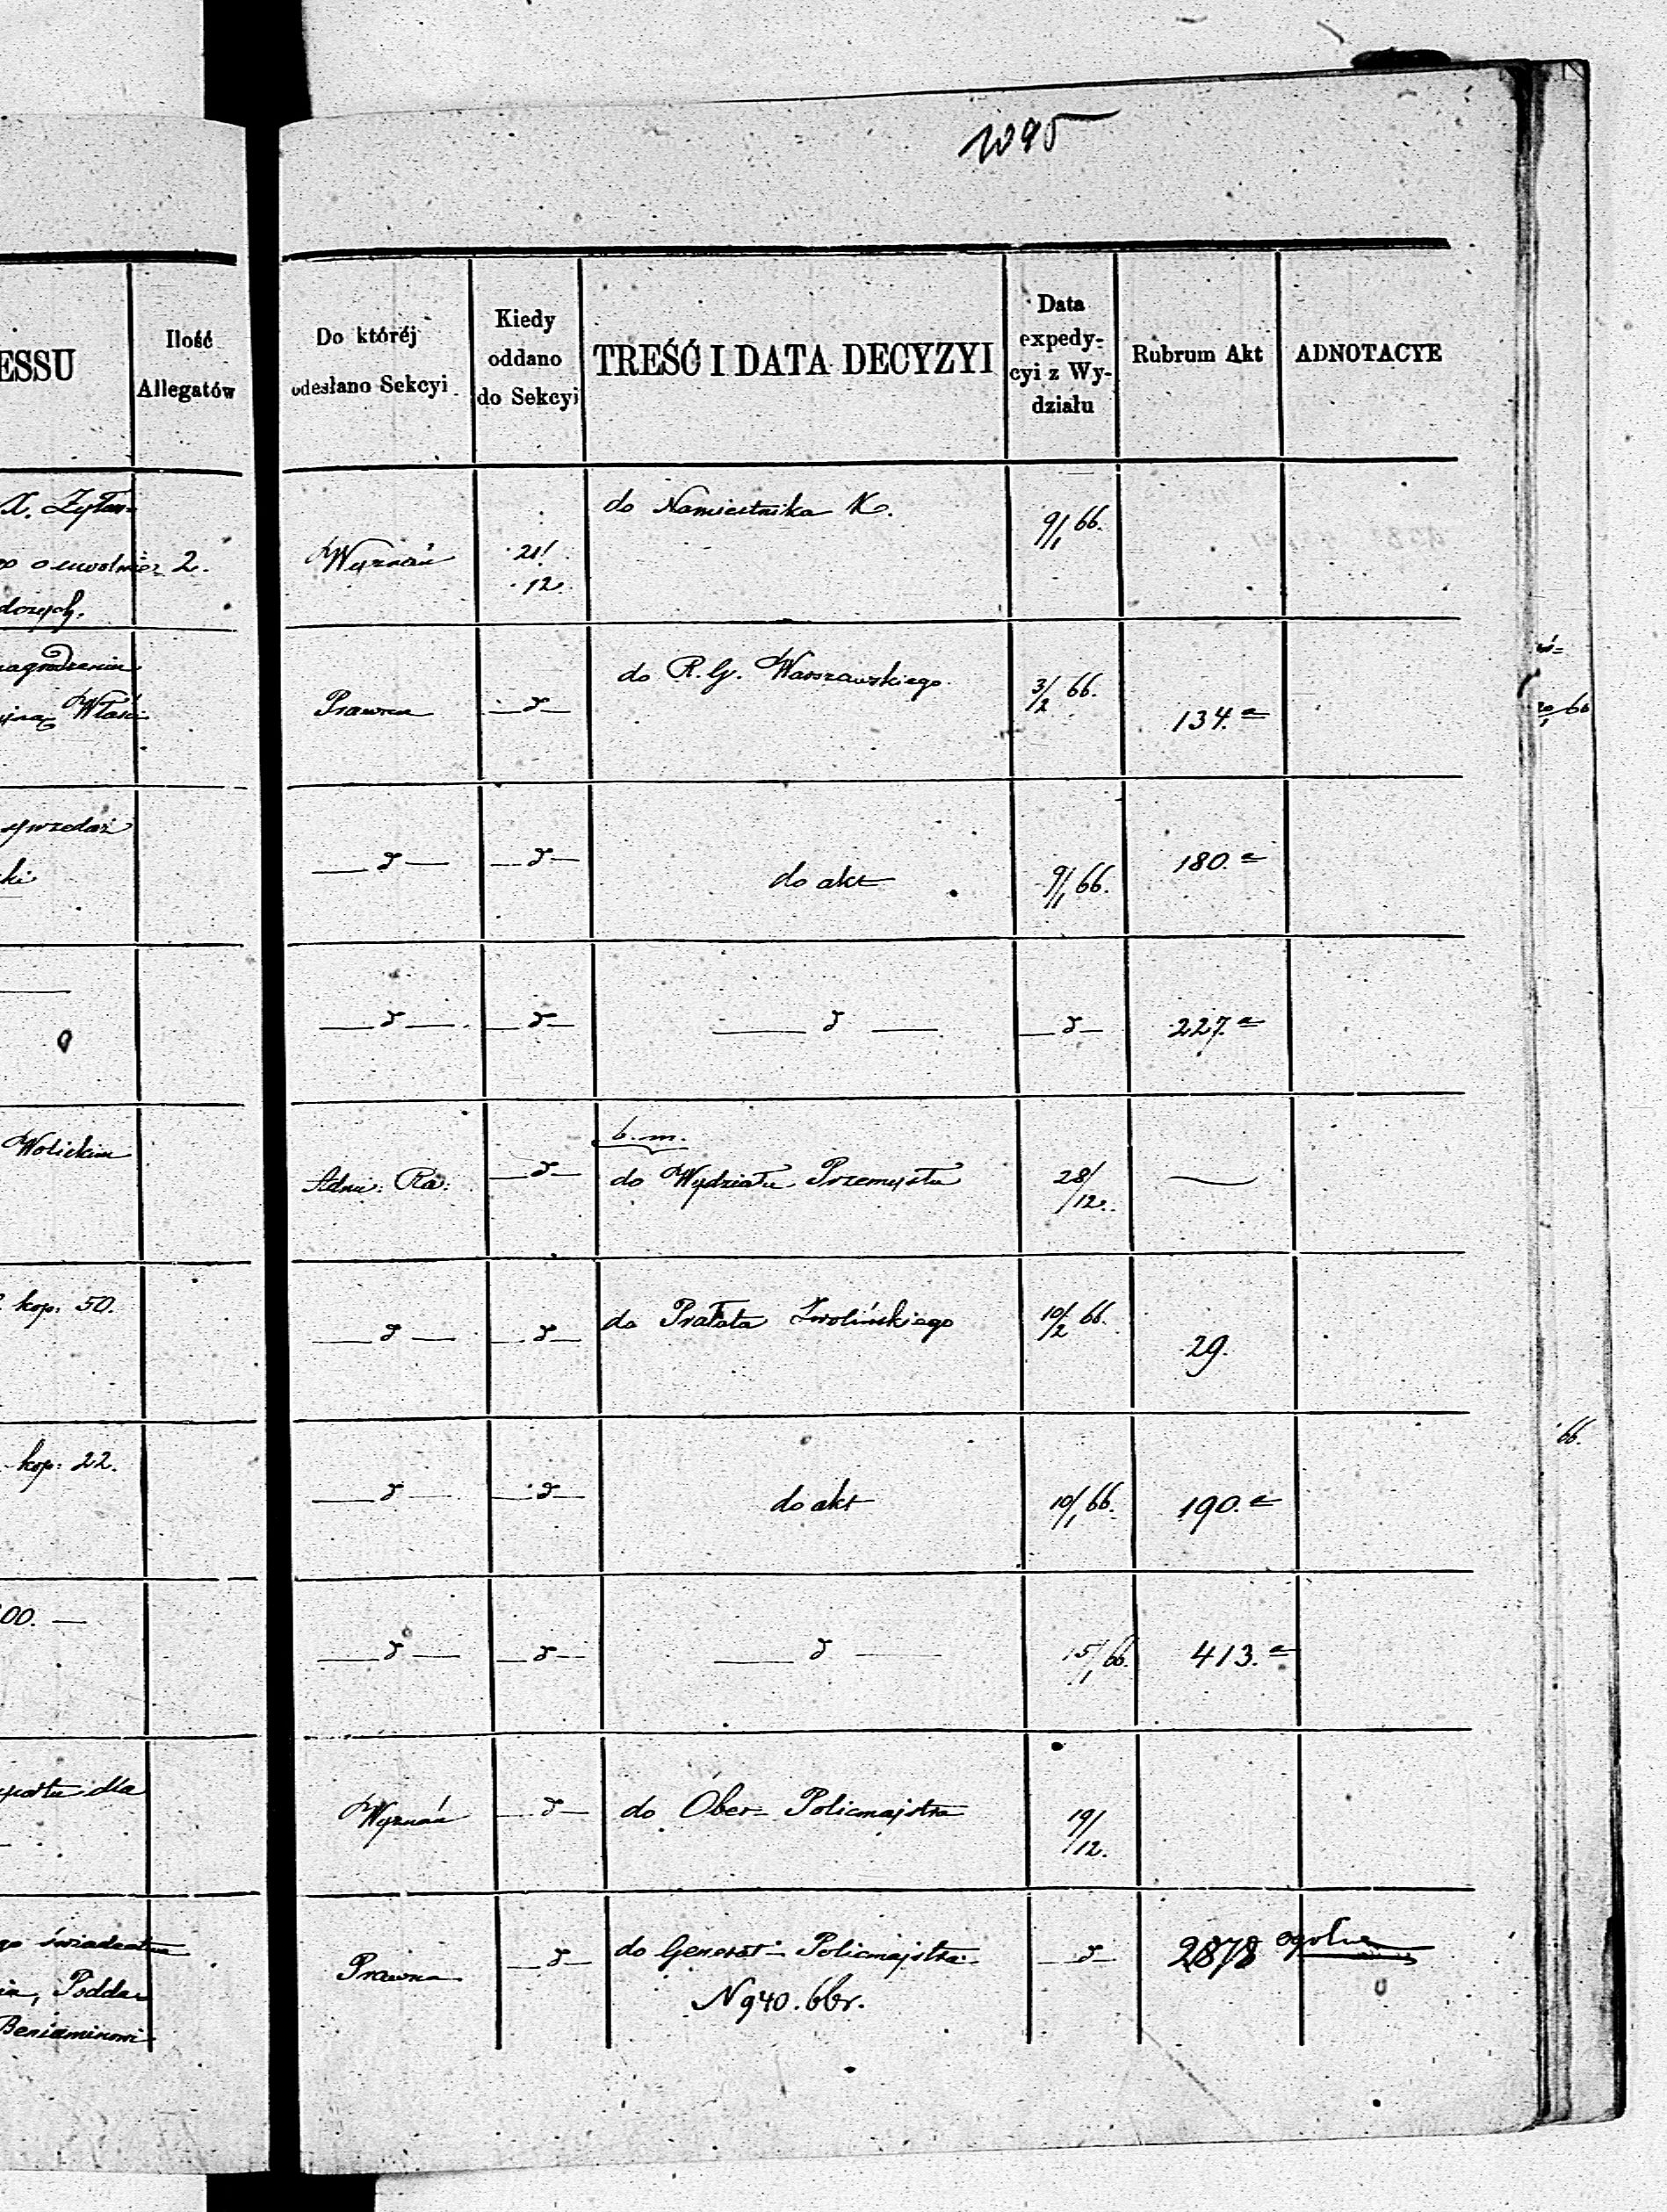 1095
ESSU
Ilość
Allegatów
Do któréj
odesłano Sekcyi
Kiedy
oddano
do Sekcyi
TREŚĆ I DATA DECYZYI
Data
expedy-
cyi z Wy-
działu
Rubrum Akt
ADNOTACYE
2.
Wyznań
21/
12.
do Namiestnika K.
9/1 66.
dczych.
nagrodzenia
Prawna
—d—
do R. G. Warszawskiego
3/2 66.
134.a
sprzedaż
ki
—d—
—d—
do akt
9/1 66.
180.a
—d—
—d—
—d—
—d—
227.a
Wolickim
Adm: Ra:
—d—
b. m.
do Wydziału Przemysłu
28/
12.
—
kop: 50.
—d—
—d—
do Prałata Zwolińskiego
10/2 66.
29.
kop: 22.
—d—
—d—
do akt
10/1 66.
190.a
00. —
—d—
—d—
—d—
15/1 66.
413.a
dla
Wyznań
—d—
do Ober-Policmajstra
19/
12.
świadectwa
Prawna
—d—
do Generał-Policmajstra
N 940. 66r.
—d—
2878 ogolne
Beniaminowi
66
66.